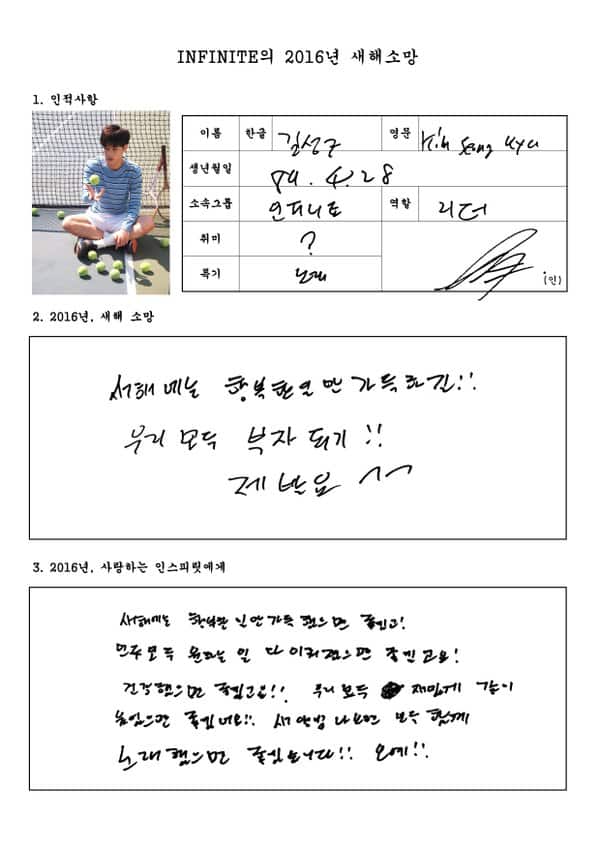 INFINITE의 2016년 새해소망
1. 인적사항
이름 한글 김성규 영문 Kim Sung Kyu
생년월일 89. 4. 28
소속그룹 인피니트 역할 리더
취미 ?
특기 노래
(인)
2. 2016년, 새해 소망
새해에는 행복한 일만 가득하길!!
우리 모두 부자 되기!!
제발요 ^^
3. 2016년, 사랑하는 인스피릿에게
새해에는 행복한 일만 가득했으면 좋겠고!
모두 원하는 일 다 이뤄졌으면 좋겠고요!
건강했으면 좋겠고요!! 우리 모두 재밌게 같이
놀았으면 좋겠네요!! 새 앨범 나오면 모두 함께
노래했으면 좋겠습니다!! 오예!!